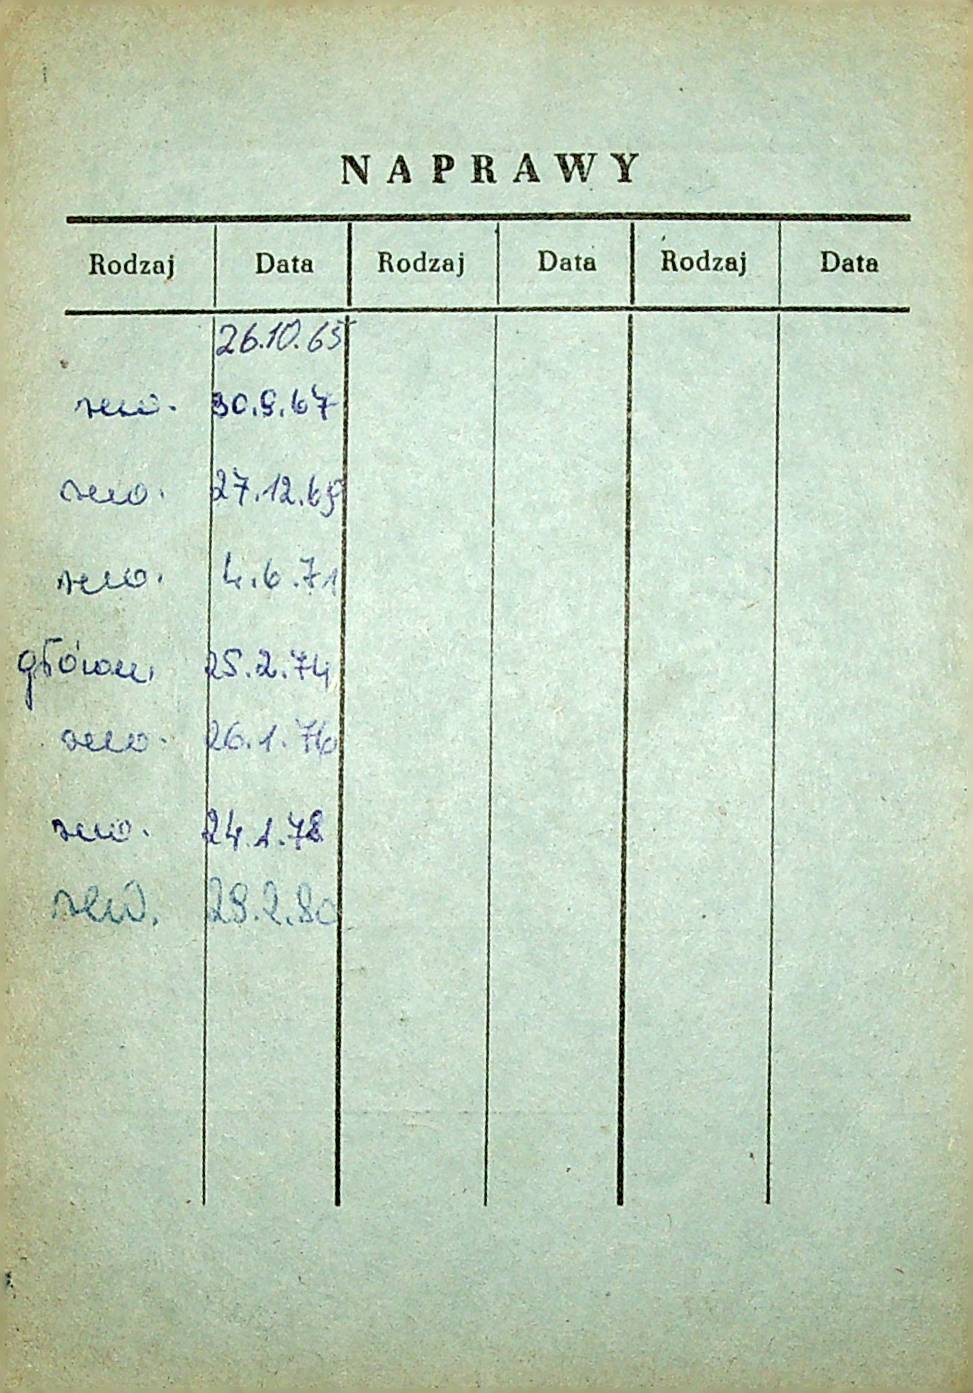 NAPRAWY
Rodzaj Data Rodzaj Data Rodzaj Data
26.10.65
rew. 30.9.67
rew. 27.12.69
rew. 4.6.71
główn. 25.2.74
rew. 26.1.76
rew. 24.1.78
rew. 28.2.80